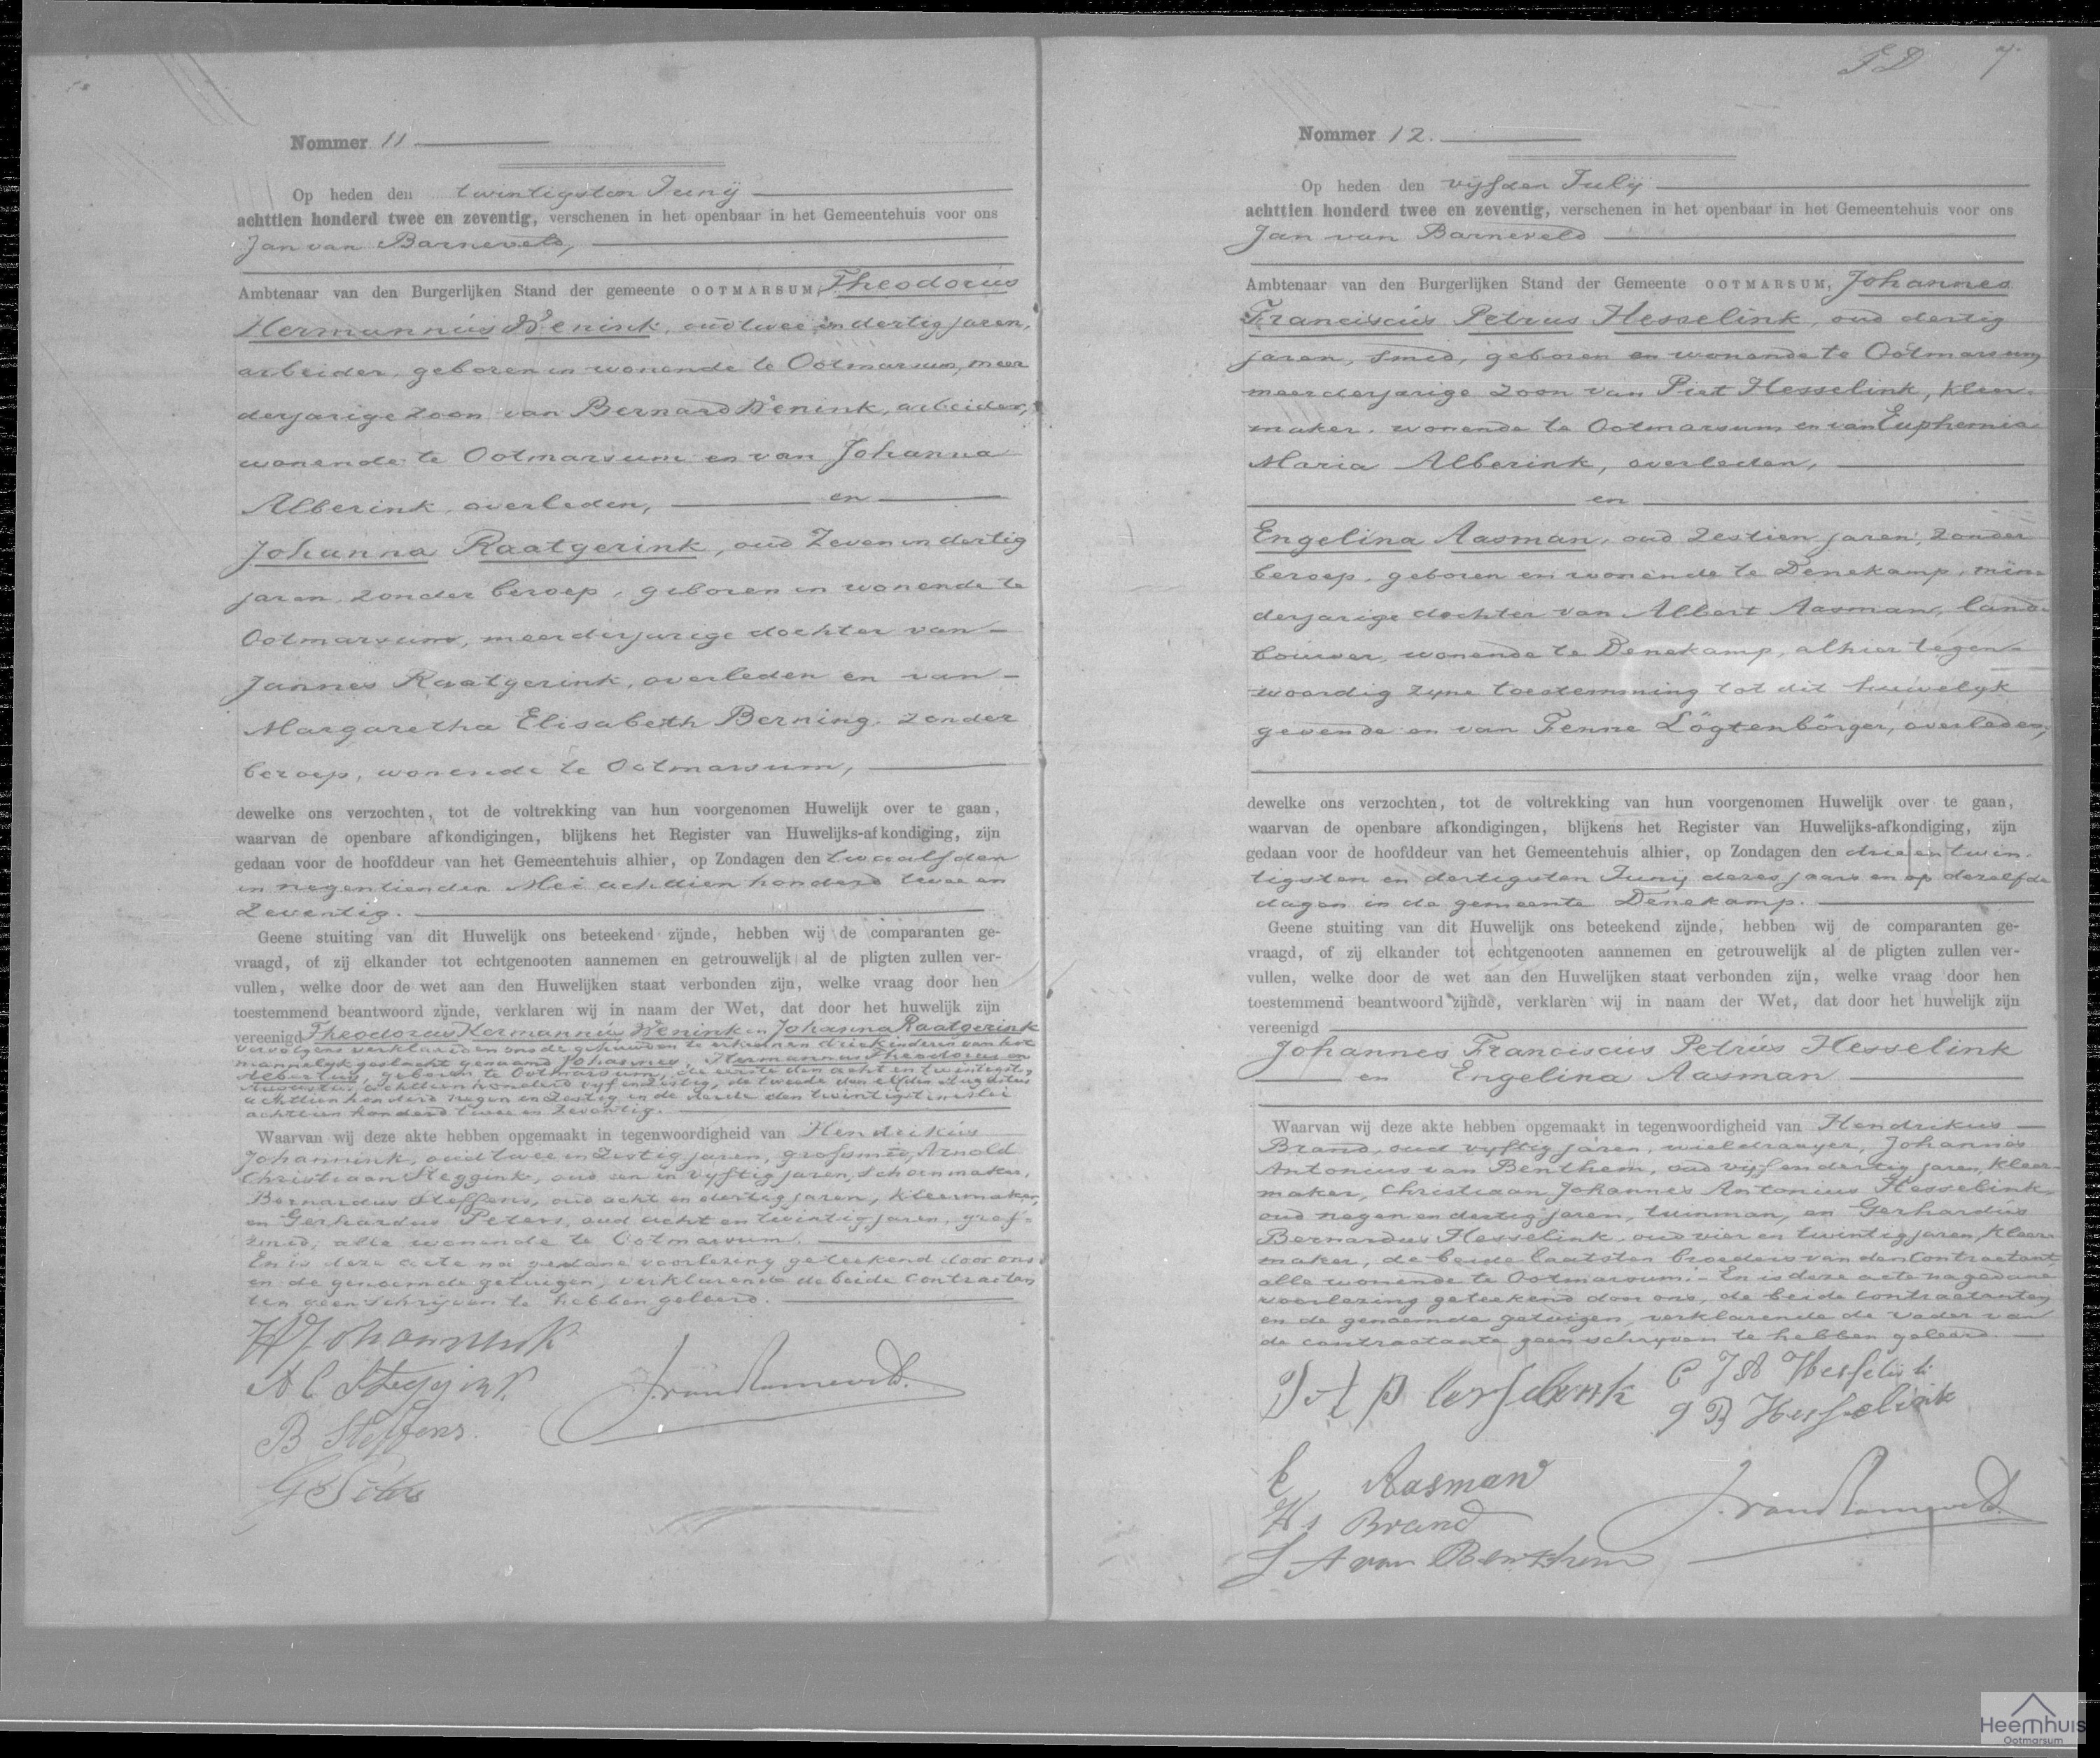 Nommer 11
Op heden den twintigsten Junij
achttien honderd twee en zeventig, verschenen in het openbaar in het Gemeentehuis voor ons
Jan van Barneveld,
Ambtenaar van den Burgerlijken Stand der gemeente OOTMARSUM, Theodorus
Hermannus Wenink, oud twee en dertig jaren,
arbeider, geboren en wonende te Ootmarsum, meer
derjarige zoon van Bernard Wenink, arbeider,
wonende te Ootmarsum en van Johanna
Alberink, overleden, en
Johanna Raatgerink, oud Zeven en dertig
jaren, zonder beroep, geboren en wonende te
Ootmarsum, meerderjarige dochter van
Jannes Raatgerink, overleden en van
Margaretha Elisabeth Berning, zonder
beroep, wonende te Ootmarsum,
dewelke ons verzochten, tot de voltrekking van hun voorgenomen Huwelijk over te gaan,
waarvan de openbare afkondigingen, blijkens het Register van Huwelijks-afkondiging, zijn
gedaan voor de hoofddeur van het Gemeentehuis alhier, op Zondagen den twaalfden
en negentienden Mei achttien honderd twee en
Zeventig.
Geene stuiting van dit Huwelijk ons beteekend zijnde, hebben wij de comparanten ge-
vraagd, of zij elkander tot echtgenooten aannemen en getrouwelijk al de pligten zullen ver-
vullen, welke door de wet aan den Huwelijken staat verbonden zijn, welke vraag door hen
toestemmend beantwoord zijnde, verklaren wij in naam der Wet, dat door het huwelijk zijn
vereenigd Theodorus Hermannus Wenink en Johanna Raatgerink
vervolgens verklaarden ons de gehuwden te erkennen drie kinderen van het
mannelyk geslacht genaamd Johannes, Hermannus Theodorus en
Albertus, geboren te Ootmarsum, de eerste den acht en twintigsten
Augustus achttien honderd vyf en Zestig, de tweede den elfden Augustus
achttien honderd negen en Zestig en de derde den twintigsten Mei
achttien honderd twee en Zeventig.
Waarvan wij deze akte hebben opgemaakt in tegenwoordigheid van Hendrikus
Johannink, oud twee en Zestig jaren, grofsmid, Arnold
Christiaan Steggink, oud een en vyftig jaren, Schoenmaker,
Bernardus Steffens, oud acht en dertig jaren, kleermaker,
en Gerhardus Peters, oud acht en twintig jaren, grof-
smid, alle wonende te Ootmarsum.
En is deze acte na gedane voorlezing geteekend door ons
en de genoemde getuigen, verklarende de beide contractan
ten geen schryven te hebben geleerd.
H Johannink
A C Steggink
J. van Barneveld.
B Steffens
G Peters
7.
Nommer 12.
Op heden den vyfden Julij
achttien honderd twee en zeventig, verschenen in het openbaar in het Gemeentehuis voor ons
Jan van Barneveld
Ambtenaar van den Burgerlijken Stand der Gemeente OOTMARSUM, Johannes
Franciscus Petrus Hesselink, oud dertig
jaren, Smid, geboren en wonende te Ootmarsum,
meerderjarige zoon van Piet Hesselink, kleer
maker, wonende te Ootmarsum en van Euphemia
Maria Alberink, overleden,
en
Engelina Aasman, oud Zestien jaren, zonder
beroep, geboren en wonende te Denekamp, min
derjarige dochter van Albert Aasman, land
bouwer, wonende te Denekamp, alhier tegen
woordig zyne toestemming tot dit huwelyk
gevende en van Fenne Lögtenbörger, overleden,
dewelke ons verzochten, tot de voltrekking van hun voorgenomen Huwelijk over te gaan,
waarvan de openbare afkondigingen, blijkens het Register van Huwelijks-afkondiging, zijn
gedaan voor de hoofddeur van het Gemeentehuis alhier, op Zondagen den drie en twin
tigsten en dertigsten Juny dezes jaars en op dezelfde
dagen in de gemeente Denekamp.
Geene stuiting van dit Huwelijk ons beteekend zijnde, hebben wij de comparanten ge-
vraagd, of zij elkander tot echtgenooten aannemen en getrouwelijk al de pligten zullen ver-
vullen, welke door de wet aan den Huwelijken staat verbonden zijn, welke vraag door hen
toestemmend beantwoord zijnde, verklaren wij in naam der Wet, dat door het huwelijk zijn
vereenigd
Johannes Franciscus Petrus Hesselink
en Engelina Aasman
Waarvan wij deze akte hebben opgemaakt in tegenwoordigheid van Hendrikus
Brand, oud vyftig jaren, wieldraayer, Johannes
Antonius van Benthem, oud vijf en dertig jaren, kleer
maker, Christiaan Johannes Antonius Hesselink,
oud negen en dertig jaren, tuinman, en Gerhardus
Bernardus Hesselink, oud vier en twintig jaren, kleer
maker, de beide laatsten broeders van den Contractant,
alle wonende te Ootmarsum. En is deze acte na gedane
voorlezing geteekend door ons, de beide contractanten
en de genoemde getuigen, verklarende de vader van
de contractante geen schryven te hebben geleerd.
Hesselink
C J A Hesselink
G B Hesselink
E Aasman
Hs Brand
J. van Barneveld.
J A van Benthem
Heemhuis
Ootmarsum